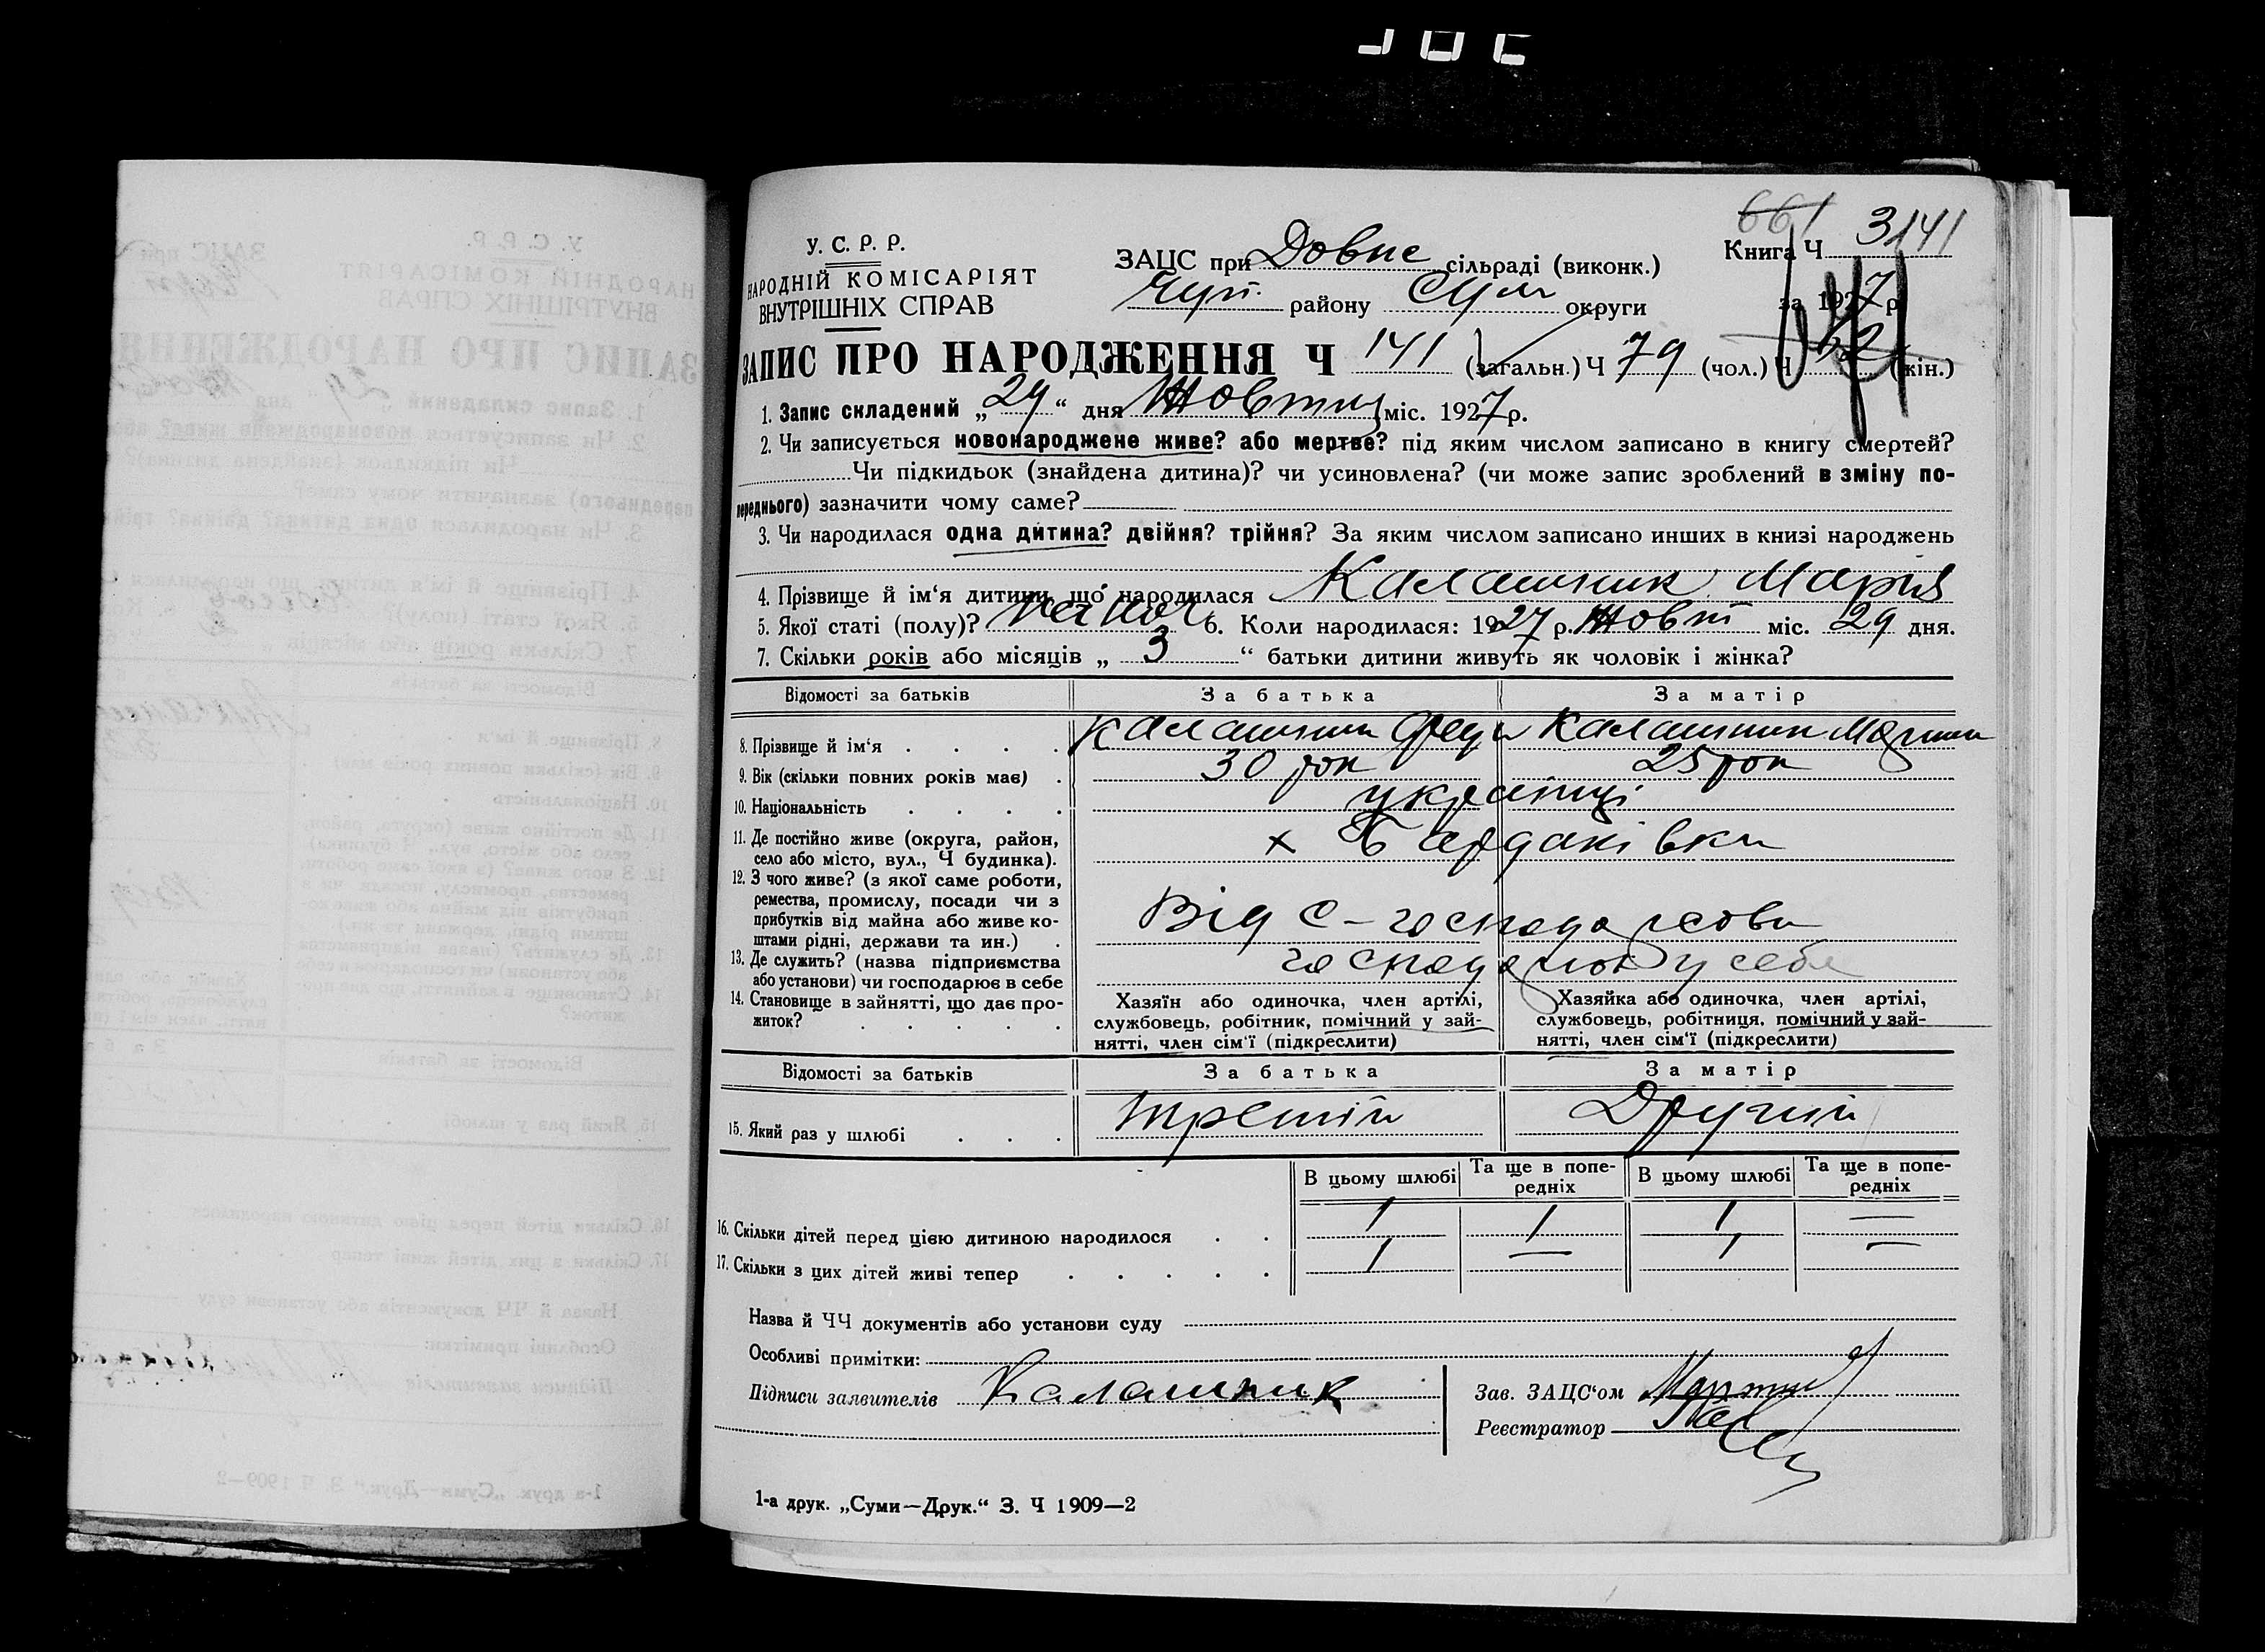 661 3141
У. С. Р. Р.
НАРОДНІЙ КОМІСАРІЯТ
ВНУТРІШНІХ СПРАВ
ЗАЦС при Довне сільраді (виконк.)
Книга Ч
Чуп. району Сум округи
за 1927 р
ЗАПИС ПРО НАРОДЖЕННЯ Ч 141 (загальн.) Ч 79 (чол.) Ч 62 (жін.)
1. Запис складений „29“ дня Жовтня міс. 1927 р.
2. Чи записується новонароджене живе? або мертве? під яким числом записано в книгу смертей?
Чи підкидьок (знайдена дитина)? чи усиновлена? (чи може запис зроблений в зміну по-
переднього) зазначити чому саме?
3. Чи народилася одна дитина? двійня? трійня? За яким числом записано инших в книзі народжень
4. Прізвище й ім‘я дитини, що народилася Калашник Мария
5. Якої статі (полу)? 6. Коли народилася: 1927 р. Жовт міс. 29 дня.
7. Скільки років або місяців „ 3 “ батьки дитини живуть як чоловік і жінка?
Відомості за батьків За батька За матір
8. Прізвище й ім‘я . . . . Калашник Калашник
9. Вік (скільки повних років має) . 30 рок 25 рок
10. Національність . . . . українці
11. Де постійно живе (округа, район,
село або місто, вул., Ч будинка).
х Бардаківка
12. З чого живе? (з якої саме роботи,
ремества, промислу, посади чи з
прибутків від майна або живе ко-
штами рідні, держави та ин.) .
Від с-господарства
13. Де служить? (назва підприємства
або установи) чи господарює в себе
у себе
14. Становище в зайнятті, що дає про-
житок? . . . . .
Хазяїн або одиночка, член артілі,
службовець, робітник, помічний у зай-
нятті, член сім‘ї (підкреслити)
Хазяйка або одиночка, член артілі,
службовець, робітниця, помічний у зай-
нятті, член сім‘ї (підкреслити)
Відомості за батьків За батька За матір
15. Який раз у шлюбі . . . Третій Другий
В цьому шлюбі Та ще в попе-
редніх В цьому шлюбі Та ще в попе-
редніх
16. Скільки дітей перед цією дитиною народилося . . 1 1 1 —
17. Скільки з цих дітей живі тепер . . . . . 1 — 1 —
Назва й ЧЧ документів або установи суду
Особливі примітки:
Підписи заявителів Калашник
Зав. ЗАЦС‘ом
Реєстратор
1-а друк. „Суми—Друк.“ З. Ч 1909—2